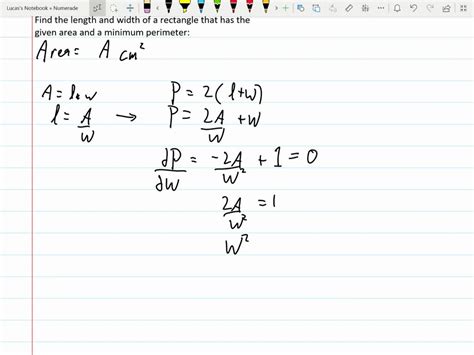 Lucas's Notebook • Numerade
Find the length and width of a rectangle that has the
given area and a minimum perimeter:
Area = A cm²
A = l * w P = 2(l+w)
l = A/W → P = 2A/W + W
∂P/∂W = -2A/W² + 1 = 0
2A/W² = 1
W²